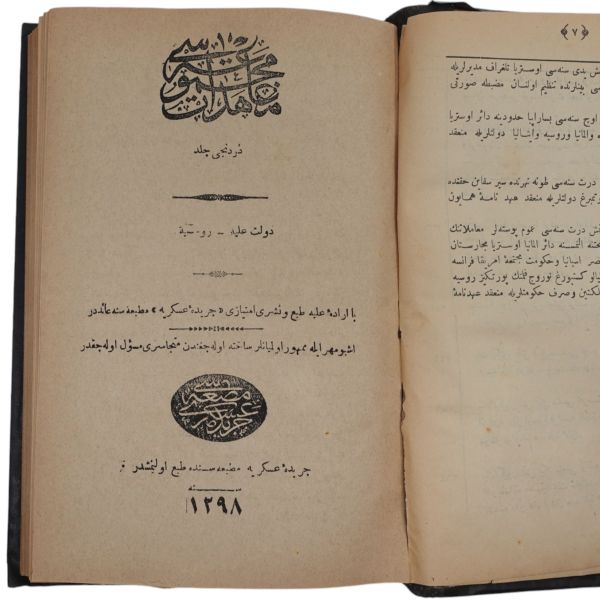 معاهدات مجموعه سی
دردنجی جلد
دولت علیه – روسیة
با ارادهٔ علیه طبع و نشری امتیازی «جریدهٔ عسکریه» مطبعه سنه عائددر
اشبو مهر ایله ممهور اولمیانلر ساخته اوله جغندن متجاسری مسؤل اوله جقدر
مطبعه سی جریدهٔ عسکریه
جریدهٔ عسکریه مطبعه سنده طبع اولنمشدر
سنه
۱۲۹۸
﴿ ۷ ﴾
ش یدی سنه سی اوستریا تلغراف مدیرلریله
سی بینلرنده تنظیم اولنان مضبطه صورتی
اوچ سنه سی بسارابیا حدودینه دائر اوستریا
والمانیا وروسیه وایتالیا دولتلریله منعقد
درت سنه سی طونه نهرنده سیر سفاین حقنده
وتمبرغ دولتلریله منعقد عهد نامهٔ همایون
درت سنه سی عموم پوسته لر معاملاتنك
دائر المانیا اوستریا مجارستان
اسپانیا وحکومت مجتمعهٔ امریقا فرانسه
نوروچ فلمنك پورتکیز روسیه
وصرف حکومتلریله منعقد عهدنامهٔ